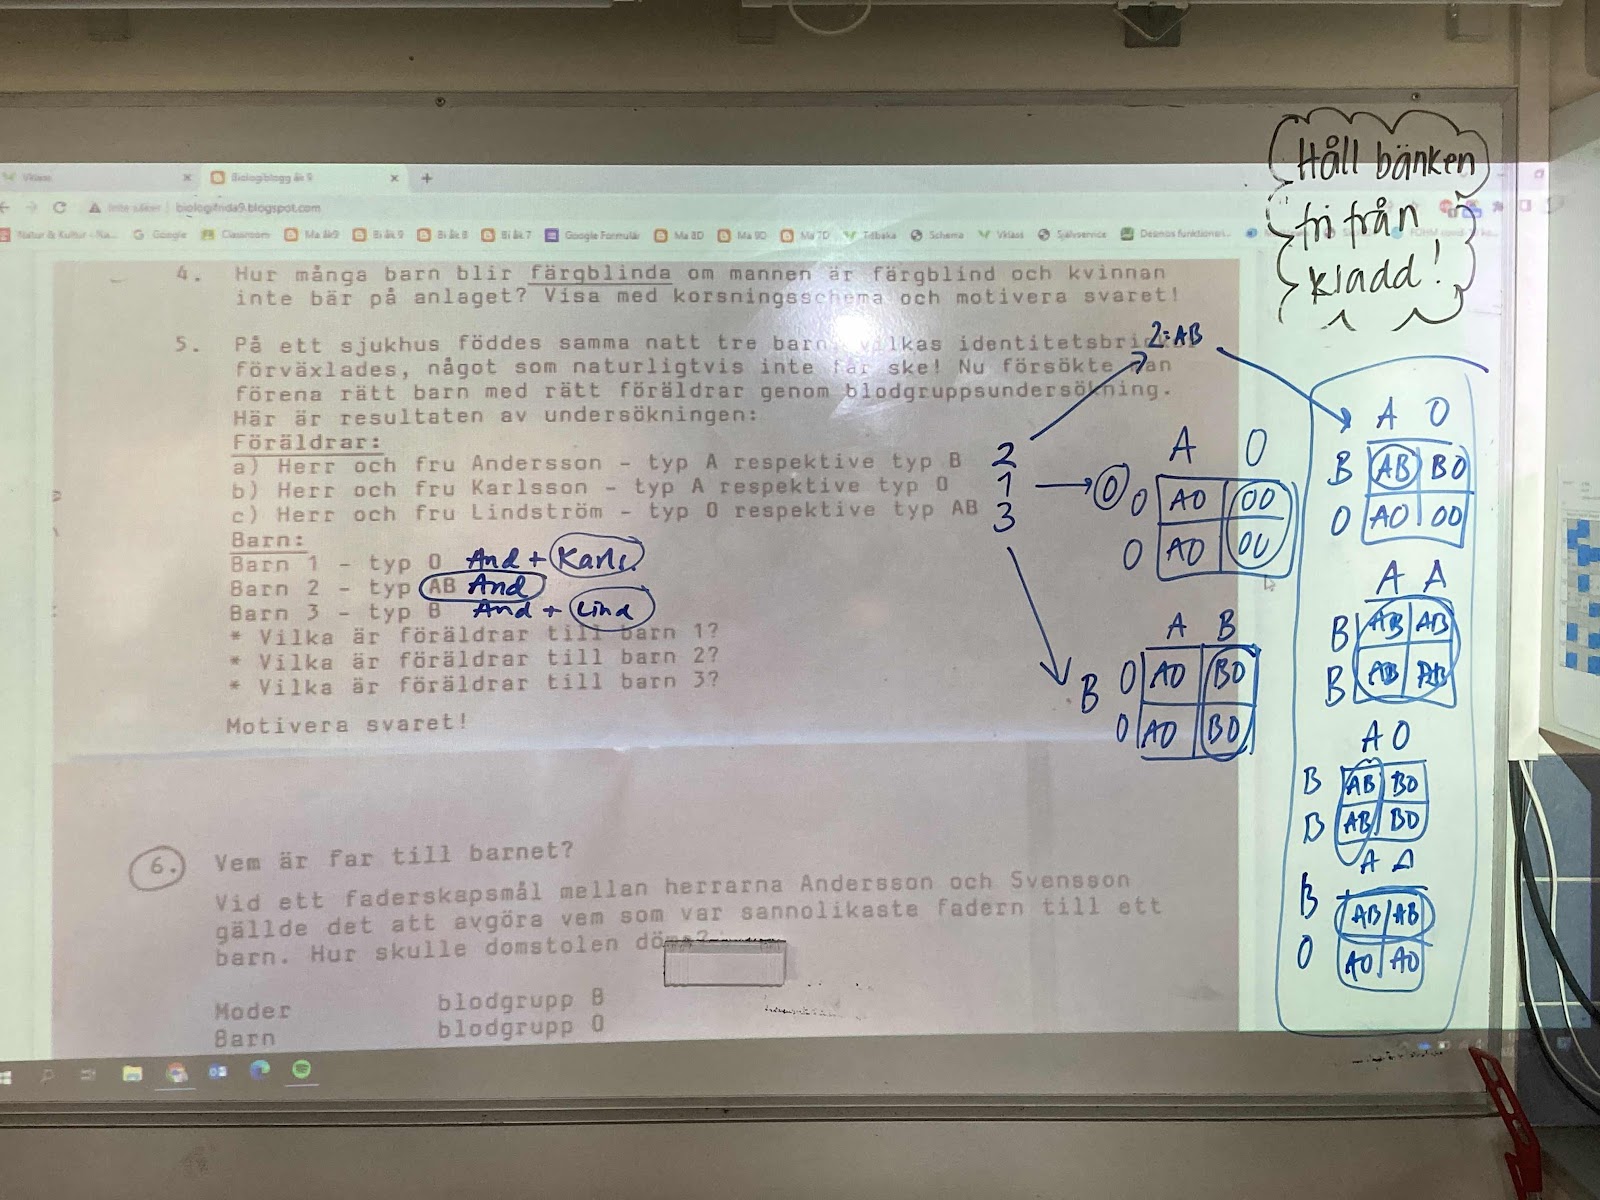 Vklass
Biologiblogg åk 9
Inte säker
biologifrida9.blogspot.com
Natur & Kultur - Na...
Google
Classroom
Ma åk9
Bi åk 9
Bi åk 8
Bi åk 7
Google Formulär
Ma 8D
Ma 9D
Ma 7D
Tillbaka
Schema
Vklass
Självservice
Desmos funktionsri...
4. Hur många barn blir färgblinda om mannen är färgblind och kvinnan
inte bär på anlaget? Visa med korsningsschema och motivera svaret!
5. På ett sjukhus föddes samma natt tre barn vilkas
förväxlades, något som naturligtvis inte får ske! Nu försökte man
förena rätt barn med rätt föräldrar genom blodgruppsundersökning.
Här är resultaten av undersökningen:
Föräldrar:
a) Herr och fru Andersson - typ A respektive typ B 2
b) Herr och fru Karlsson - typ A respektive typ O 1
c) Herr och fru Lindström - typ O respektive typ AB 3
Barn:
Barn 1 - typ O And + Karls.
Barn 2 - typ AB And
Barn 3 - typ B And + Lind
* Vilka är föräldrar till barn 1?
* Vilka är föräldrar till barn 2?
* Vilka är föräldrar till barn 3?
Motivera svaret!
6. Vem är far till barnet?
Vid ett faderskapsmål mellan herrarna Andersson och Svensson
gällde det att avgöra vem som var sannolikaste fadern till ett
barn. Hur skulle domstolen döma?
Moder blodgrupp B
Barn blodgrupp O
Håll bänken
fri från
kladd!
2: AB
A O
O O AO OO
O AO OO
A B
B O AO BO
O AO BO
A O
B AB BO
O AO OO
A A
B AB AB
B AB AB
A O
B AB BO
B AB BO
A A
B AB AB
O AO AO